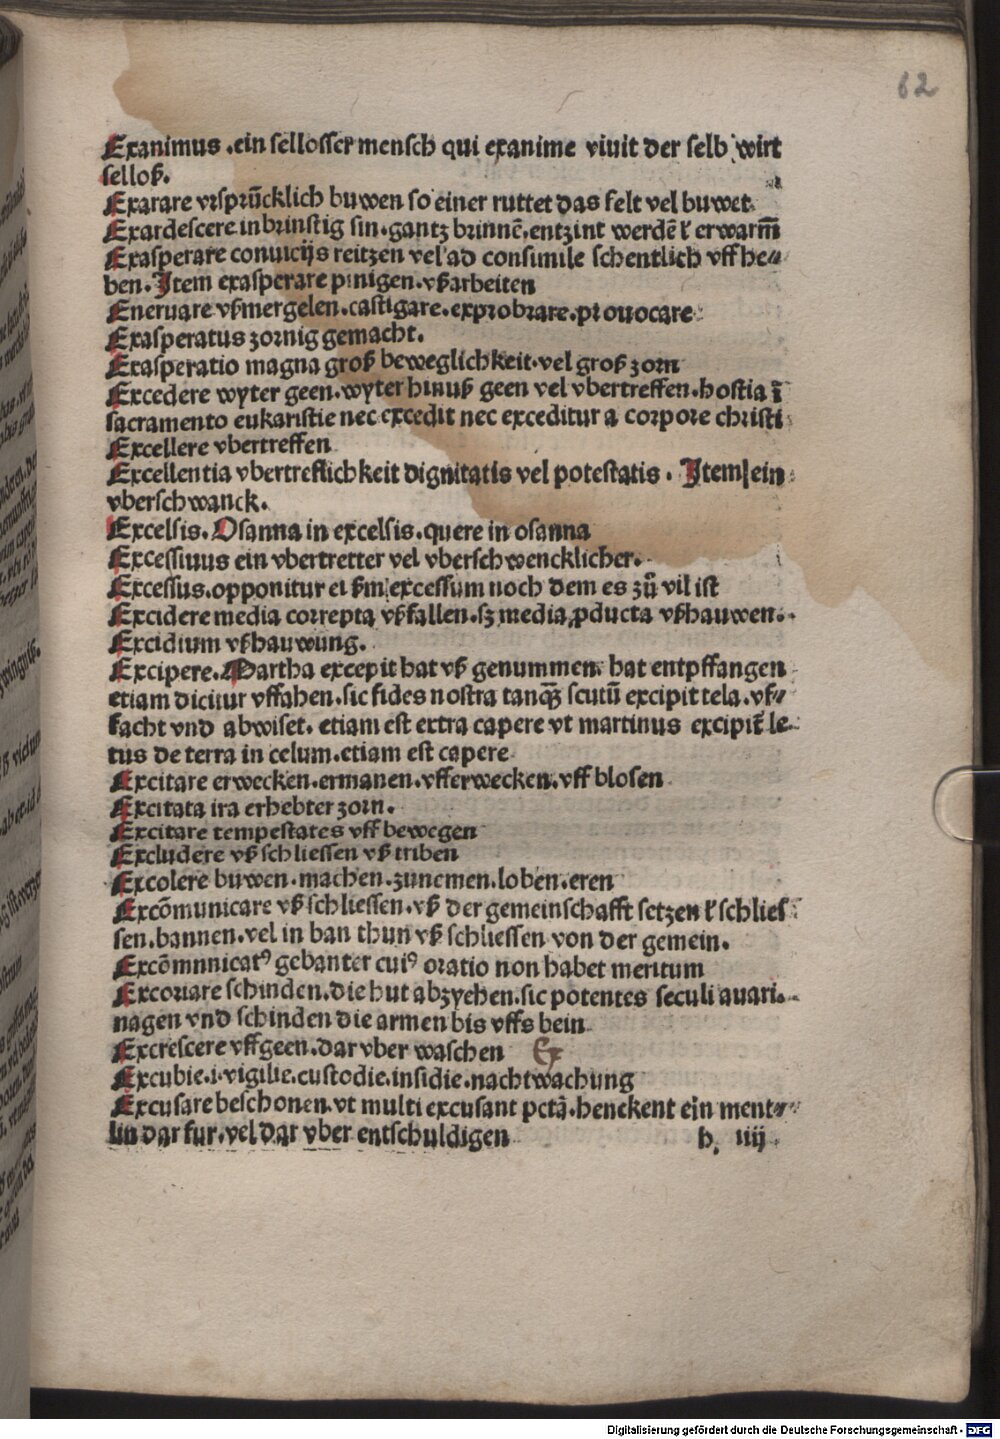 62
Exanimus .ein sellosser mensch qui exanime viuit der selb wirt
selloß.
Exarare vrsprücklich buwen so einer ruttet das felt vel buwet
Exardescere inbrinstig sin.gantz brinnē.entzint werdē ł erwarm̄
Exasperare conuicijs reitzen vel ad consimile schentlich vff he⸗
ben. Item exasperare pinigen.vßarbeiten
Eneruare vßmergelen.castigare.exprobrare.prouocare
Exasperatus zornig gemacht.
Exasperatio magna groß beweglichkeit.vel groß zorn
Excedere wyter geen.wyter hinuß geen vel vbertreffen.hostia ī
sacramento eukaristie nec excedit nec exceditur a corpore christi
Excellere vbertreffen
Excellentia vbertreflichkeit dignitatis vel potestatis . Item ein
vberschwanck.
Excelsis. Osanna in excelsis.quere in osanna
Excessiuus ein vbertretter vel vberschwencklicher.
Excessus.opponitur ei ẞm excessum noch dem es zů vil ist
Excidere media correpta vßfallen.sꝫ media ꝓducta vßhauwen.
Excidium vßhauwung.
Excipere. Martha excepit hat vß genummen. hat entpffangen
etiam dicitur vffahen.sic fides nostra tanqꝫ scutū excipit tela.vf⸗
facht vnd abwiset. etiam est extra capere vt martinus excipit̄ le⸗
tus de terra in celum.etiam est capere
Excitare erwecken.ermanen.vfferwecken.vff blosen
Excitata ira erhebter zorn.
Excitare tempestates vff bewegen
Excludere vß schliessen vß triben
Excolere buwen.machen.zunemen.loben.eren
Excōmunicare vß schliessen.vß der gemeinschafft setzen ł schlies
sen.bannen.vel in ban thun vß schliessen von der gemein.
Excōmnnicatꝰ gebanter cuiꝰ oratio non habet meritum
Excoriare schinden.die hut abzyehen.sic potentes seculi auari.
nagen vnd schinden die armen bis vffs bein
Excrescere vffgeen.dar vber waschen Ex
Excubie.i.vigilie.custodie.insidie.nachtwachung
Excusare beschonen.vt multi excusant pctā.henckent ein ment⸗
lin dar fur.vel dar vber entschuldigen h. iiij
Digitalisierung gefördert durch die Deutsche Forschungsgemeinschaft - DFG